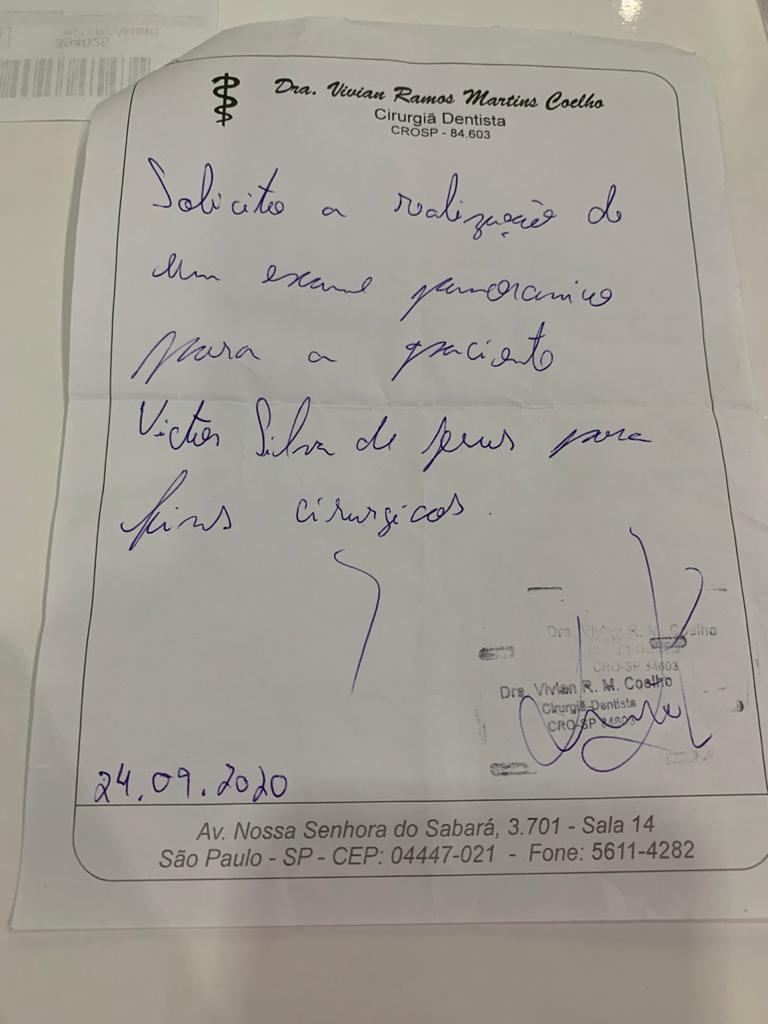 INTERCÂMBIO
394026
Dra. Vivian Ramos Martins Coelho
Cirurgiã Dentista
CROSP - 84.603
Solicito a realização de
um exame panoramico
para a paciente
Victor Silva de Jesus para
fins cirurgicos.
Dra. Vivian R. M. Coelho
Cirurgiã-Dentista
CRO-SP 84603
Dra. Vivian R. M. Coelho
Cirurgiã-Dentista
CRO-SP 84603
24.09.2020
Av. Nossa Senhora do Sabará, 3.701 - Sala 14
São Paulo - SP - CEP: 04447-021 - Fone: 5611-4282